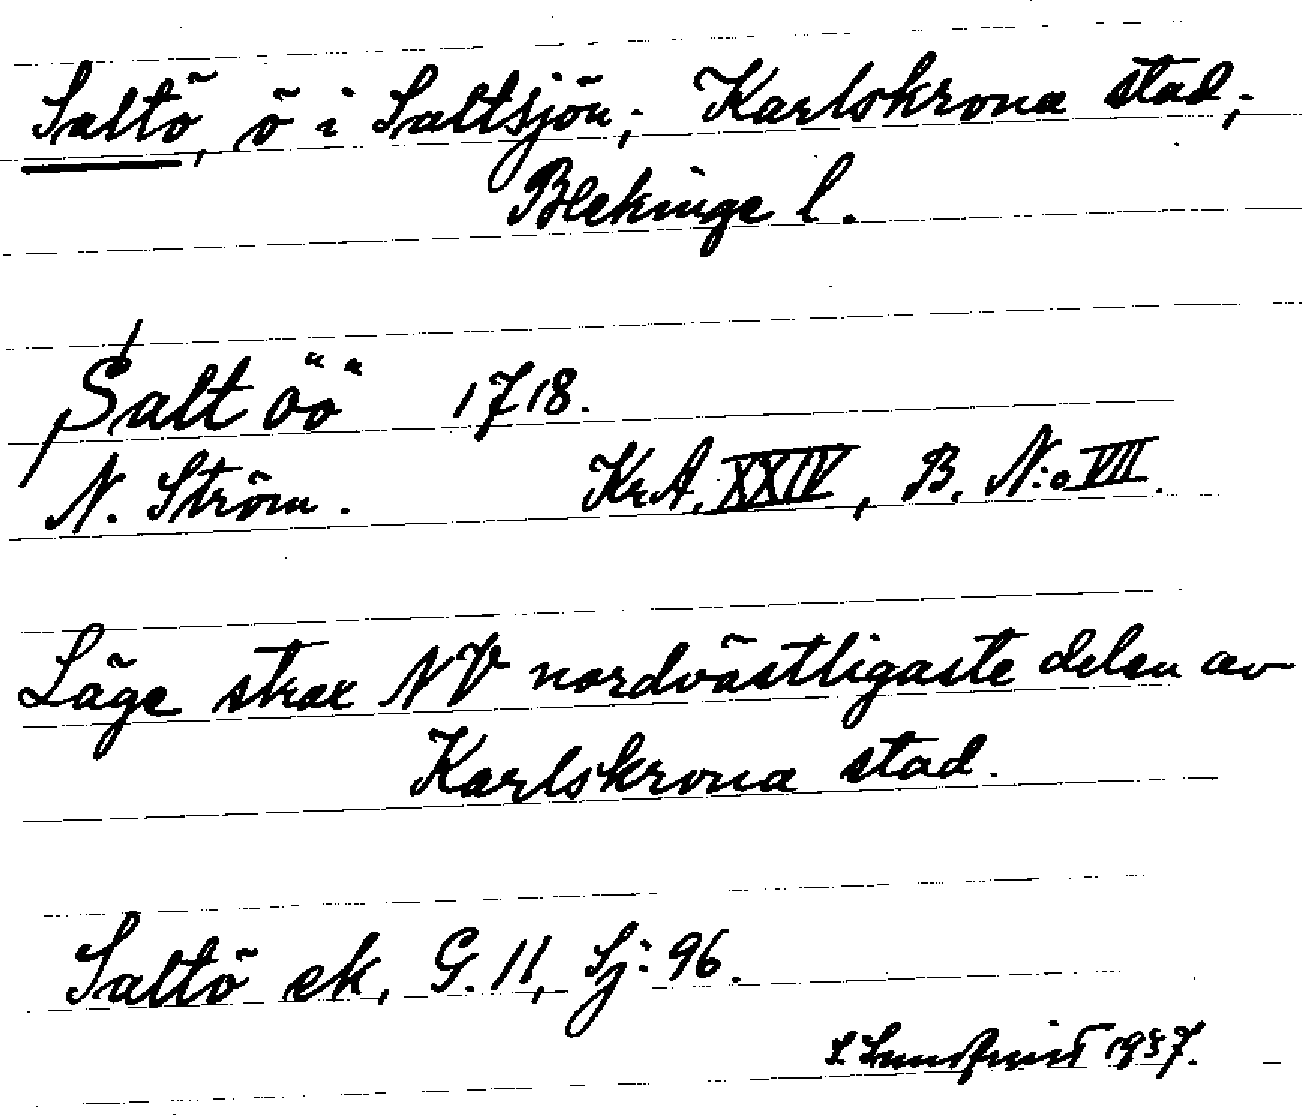 Saltö, ö i Saltsjön; Karlskrona stad;
Blekinge l.
Salt öö 1718.
N. Ström. KrA. XXIV, B. N:o VII.
Läge strax NV nordvästligaste delen av
Karlskrona stad.
Saltö ek, G. 11, Sj: 96.
S. Lundquist 1937.